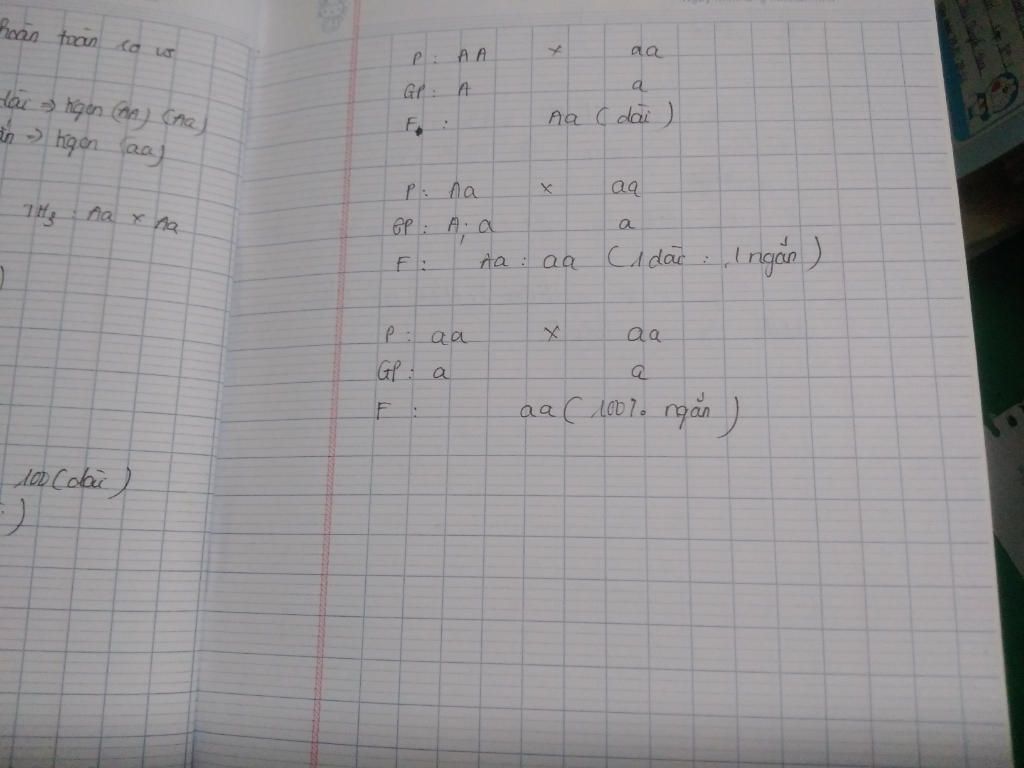 toàn
dài => ngon (AA) (Aa)
=> ngon (aa)
TH3 : Aa x Aa
)
100 (dài)
)
P : AA x aa
GP : A a
F : Aa (dài)
P : Aa x aa
GP : A ; a a
F : Aa : aa (1 dài : 1 ngắn)
P : aa x aa
GP : a a
F : aa (100% ngắn)